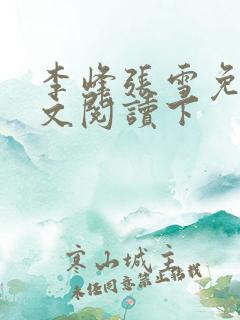 李峰張雪免
文閱讀下
寒山城主
未经同意禁止转载